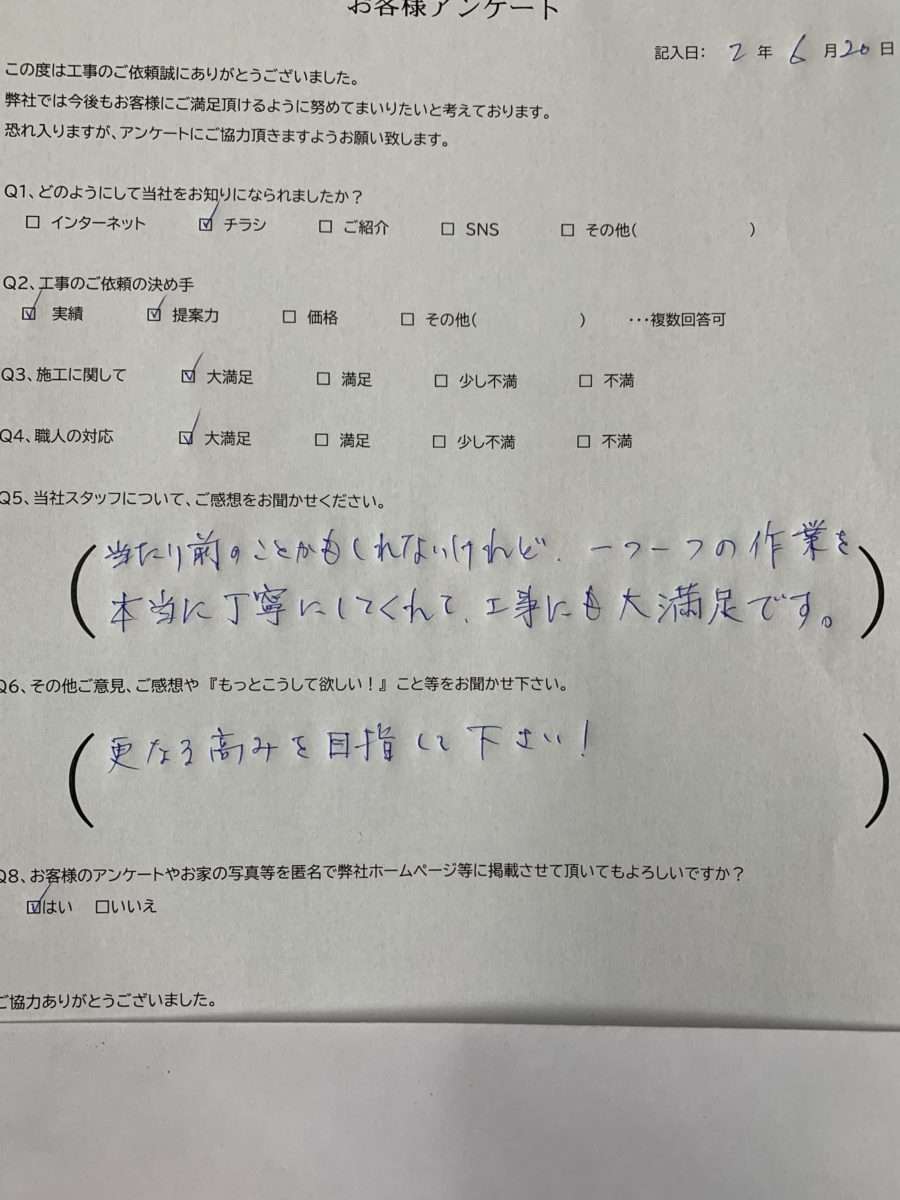 お客様アンケート
記入日: 2 年 6 月 20 日
この度は工事のご依頼誠にありがとうございました。
弊社では今後もお客様にご満足頂けるように努めてまいりたいと考えております。
恐れ入りますが、アンケートにご協力頂きますようお願い致します。
Q1、どのようにして当社をお知りになられましたか？
□ インターネット ☑ チラシ □ ご紹介 □ SNS □ その他( )
Q2、工事のご依頼の決め手
☑ 実績 ☑ 提案力 □ 価格 □ その他( ) …複数回答可
Q3、施工に関して ☑ 大満足 □ 満足 □ 少し不満 □ 不満
Q4、職人の対応 ☑ 大満足 □ 満足 □ 少し不満 □ 不満
Q5、当社スタッフについて、ご感想をお聞かせください。
(当たり前のことかもしれないけれど、一つ一つの作業を
本当に丁寧にしてくれて、工事にも大満足です。)
Q6、その他ご意見、ご感想や『もっとこうして欲しい！』こと等をお聞かせ下さい。
(更なる高みを目指して下さい！)
Q8、お客様のアンケートやお家の写真等を匿名で弊社ホームページ等に掲載させて頂いてもよろしいですか？
☑はい □いいえ
ご協力ありがとうございました。